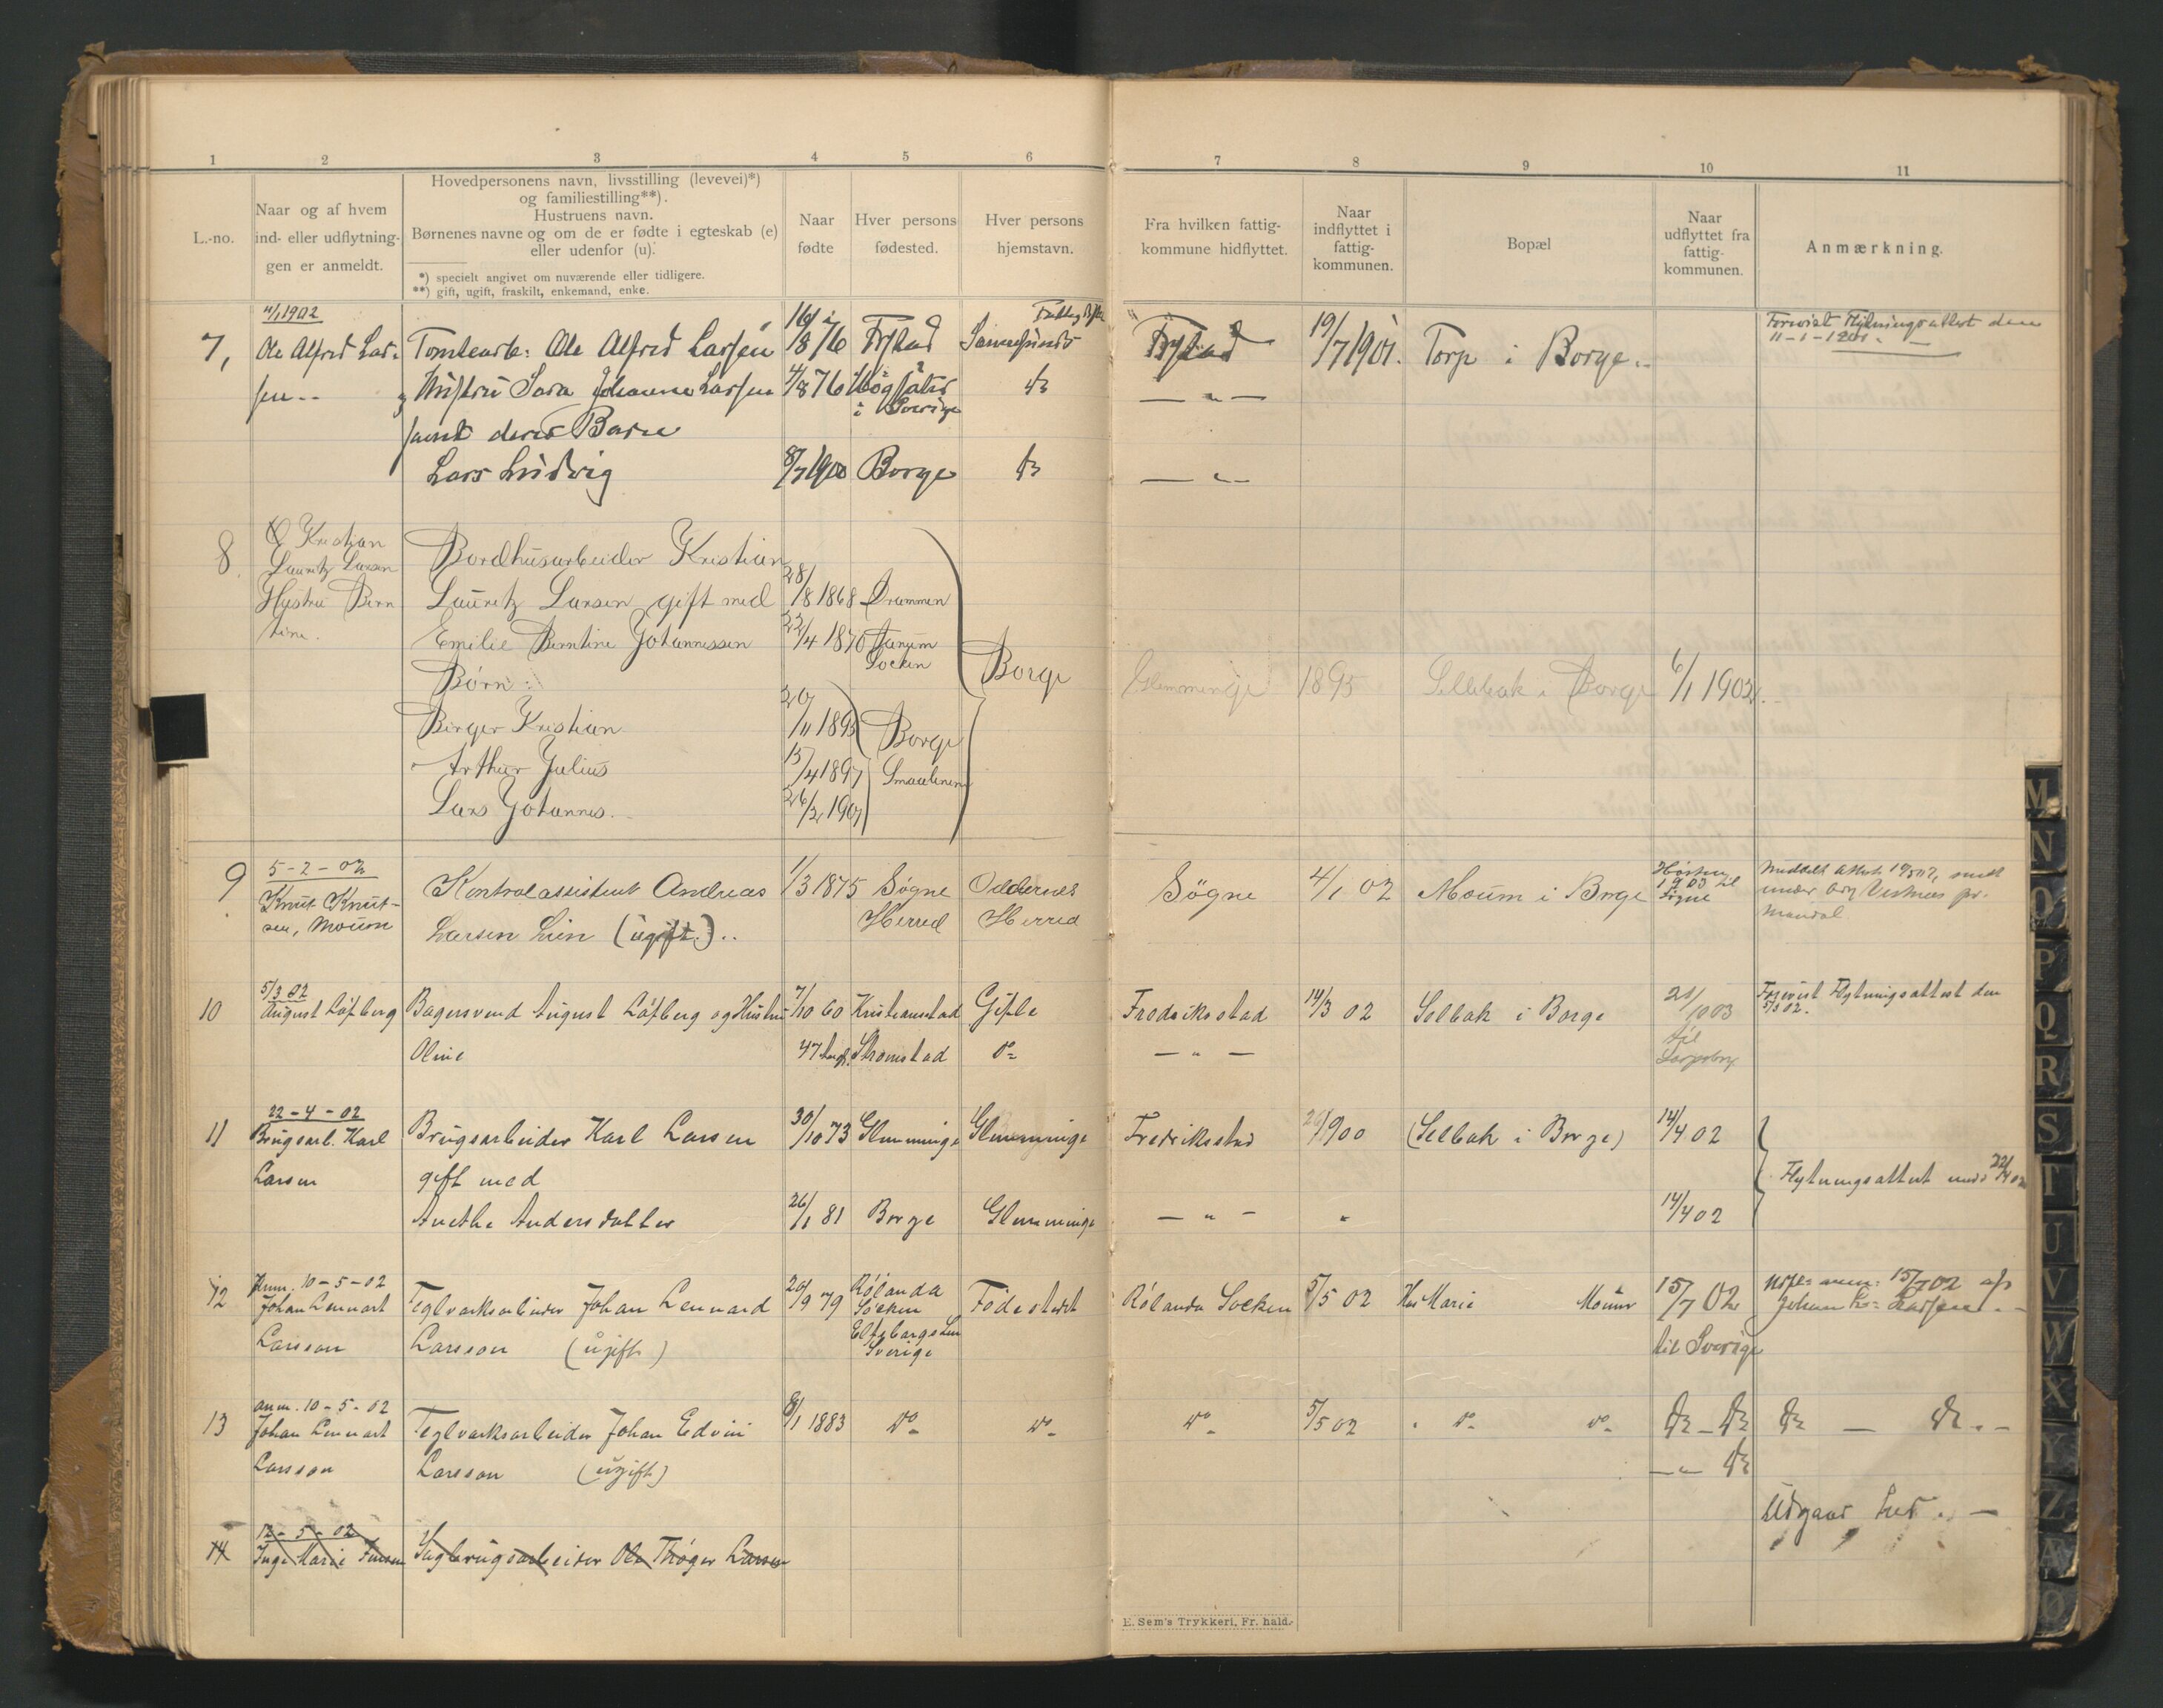 1 2 3 4 5 6 7 8 9 10 11
L.-no.
Naar og af hvem
ind- eller udflytnin-
gen er anmeldt.
Hovedpersonens navn, livsstilling (levevei)*)
og familiestilling**).
Hustruens navn.
Børnenes navne og om de er fødte i egteskab (e)
eller udenfor (u).
*) specielt angivet om nuværende eller tidligere.
**) gift, ugift, fraskilt, enkemand, enke.
Naar
fødte
Hver persons
fødested.
Hver persons
hjemstavn.
Fra hvilken fattig-
kommune hidflyttet.
Naar
indflyttet i
fattig-
kommunen.
Bopæl
Naar
udflyttet fra
fattig-
kommunen.
Anmærkning.
11/1 1902
7, Ole Alfred Lar- Tomtearb: Ole Alfred Larsen 8/76 19/7 1901. Torp i Borge..
sen -- Hustru Sara Johanne Larsen 4/8 76 i Sverige Do — " —
samt deres Barn
Lars Ludvig 8/7 1900 Borge Do — " —
Forevist Flytningsattest den
11-1-1901. —
8 Kristian
Lauritz Larsen
Hustru Bern
tine.
Bordhusarbeider Kristian
Lauritz Larsen gift med 28/8 1868 Drammen
Emilie Berntine Johannessen 22/4 1870 Tanum
Socken
Børn:
Birger Kristian 20/11 1895
Arthur Julius 15/4 1897
Lars Johannes. 26/2 1901
Borge
Smaalenene
Borge
Glemminge 1895 Sellebak i Borge 6/1 1902.
9 5-2-02
Knut Knut-
sen, Moum
Kontrolassistent Andreas 1/3 1875 Søgne Oddernes
Larsen Lien (ugift).. Herred Herred
Søgne 4/1 02 Moum i Borge Høsten
1903 til
Søgne
Mandal
10 5/3 02
August Löfberg Bagersvend August Löfberg og Hustru 7/10 60 Kristianstad Gefle Fredriksstad 14/3 02 Selbak i Borge
Oline 47 Strømstad Do — " —
21/10 03
til
Sarpsborg
Forevist Flytningsattest den
5/3 02.
11 22-4-02
Brugsarb. Karl Brugsarbeider Karl Larsen 30/10 73 Glemminge Glemminge Fredriksstad 1900 (Selbak i Borge) 14/4 02
Larsen gift med
Flytningsattest 22/4 02
Anethe Andersdatter 26/1 81 Borge Glemminge — " — " 14/4 02
12 Anm. 10-5-02
Johan Lennart Teglverksarbeider Johan Lennard 20/9 79 Rölanda
Socken
Elfsborgs Len
Sverige
Födestedet Rölanda Socken 5/5 02 Marie Moum 15/7 02
Larsson Larsson (ugift) til Sverige
15/7 02 af
Johan L: Larsson. -
13 anm. 10-5-02
Johan Lennart Teglverksarbeider Johan Edvin 8/1 1883 Do Do Do 5/5 02 " Do Do Do — Do Do — Do. -
Larsson Larsson (ugift) — " — Do
14 12-5-02
Inga Marie Sagbrugsarbeider Ole Thøger Larsen
Udgaar her. —
E. Sem's Trykkeri, Fr. hald.
M
N
O
P
Q
R
S
T
U
V
W
X
Y
Z
Æ
Ø